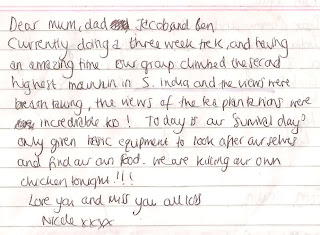 Dear mum, dad Jacob and Ben
Currently doing a three week trek, and having
an amazing time. Our group climbed the second
highest mountain in S. India and the views were
breath taking, the views of the tea plantations were
incredible too! Today is our 'Survival day'
only given basic equipment to look after ourselves
and find our own food. We are killing our own
chicken tonight!!!
Love you and miss you all lots
Nicole xxxx